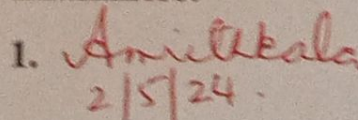 1. Amritkala
2/5/24.